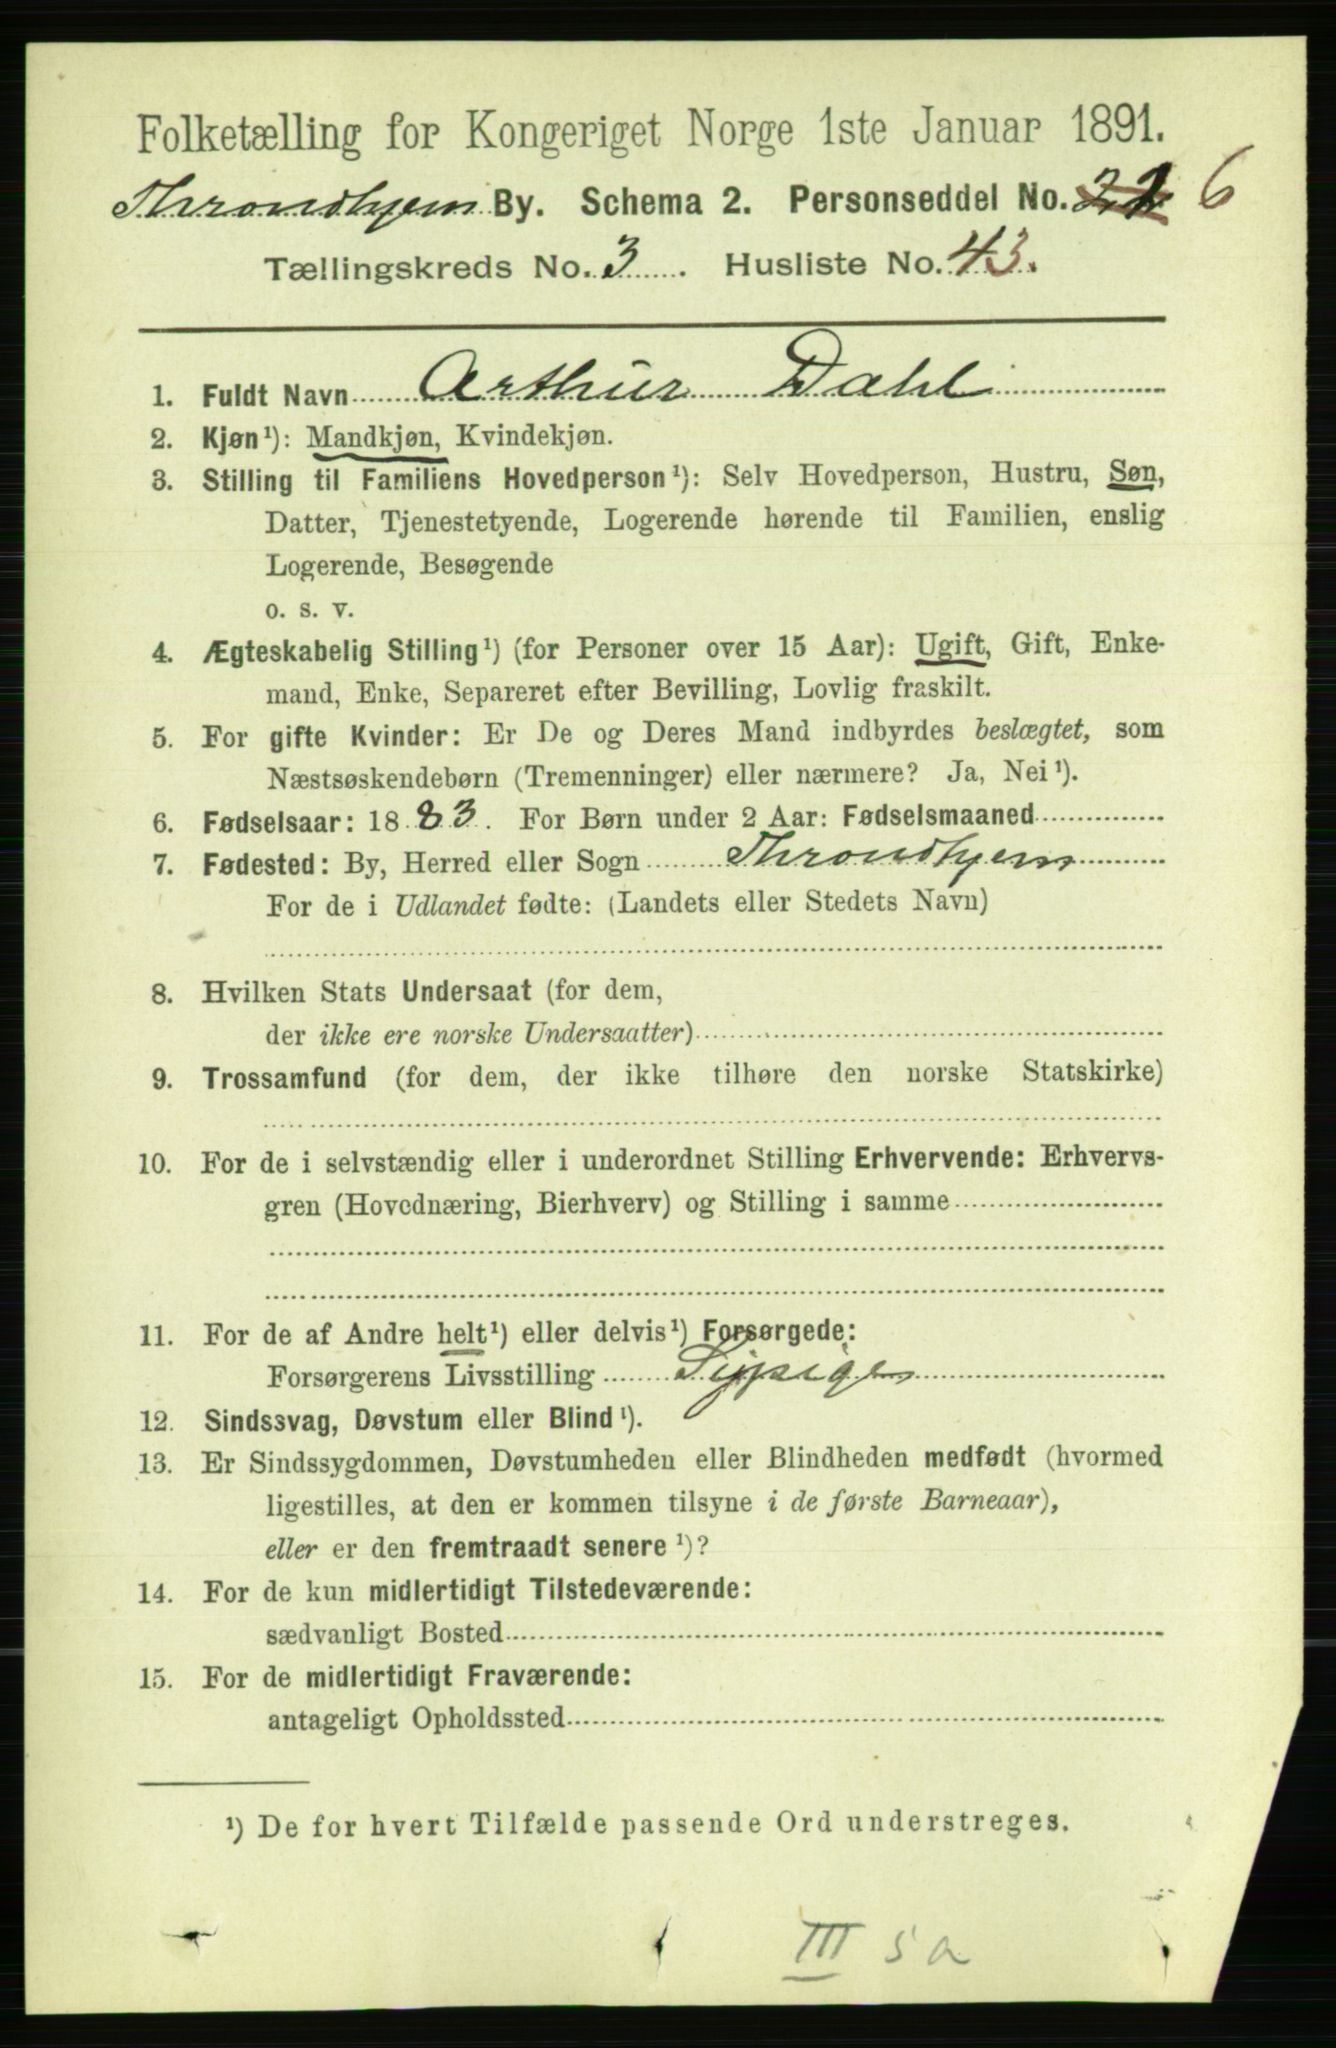 Folketælling for Kongeriget Norge 1ste Januar 1891.
Throndhjem By. Schema 2. Personseddel No. 22 6
Tællingskreds No. 3. Husliste No. 43.
1. Fuldt Navn Arthur Dahl
2. Kjøn¹): Mandkjøn, Kvindekjøn.
3. Stilling til Familiens Hovedperson¹): Selv Hovedperson, Hustru, Søn,
Datter, Tjenestetyende, Logerende hørende til Familien, enslig
Logerende, Besøgende
o. s. v.
4. Ægteskabelig Stilling¹) (for Personer over 15 Aar): Ugift, Gift, Enke-
mand, Enke, Separeret efter Bevilling, Lovlig fraskilt.
5. For gifte Kvinder: Er De og Deres Mand indbyrdes beslægtet, som
Næstsøskendebørn (Tremenninger) eller nærmere? Ja, Nei¹).
6. Fødselsaar: 1883. For Børn under 2 Aar: Fødselsmaaned
7. Fødested: By, Herred eller Sogn Throndhjem
For de i Udlandet fødte: (Landets eller Stedets Navn)
8. Hvilken Stats Undersaat (for dem,
der ikke ere norske Undersaatter)
9. Trossamfund (for dem, der ikke tilhøre den norske Statskirke)
10. For de i selvstændig eller i underordnet Stilling Erhvervende: Erhvervs-
gren (Hovednæring, Bierhverv) og Stilling i samme
11. For de af Andre helt¹) eller delvis¹) Forsørgede:
Forsørgerens Livsstilling
12. Sindssvag, Døvstum eller Blind¹).
13. Er Sindssygdommen, Døvstumheden eller Blindheden medfødt (hvormed
ligestilles, at den er kommen tilsyne i de første Barneaar),
eller er den fremtraadt senere¹)?
14. For de kun midlertidigt Tilstedeværende:
sædvanligt Bosted
15. For de midlertidigt Fraværende:
antageligt Opholdssted
¹) De for hvert Tilfælde passende Ord understreges.
III 5 a